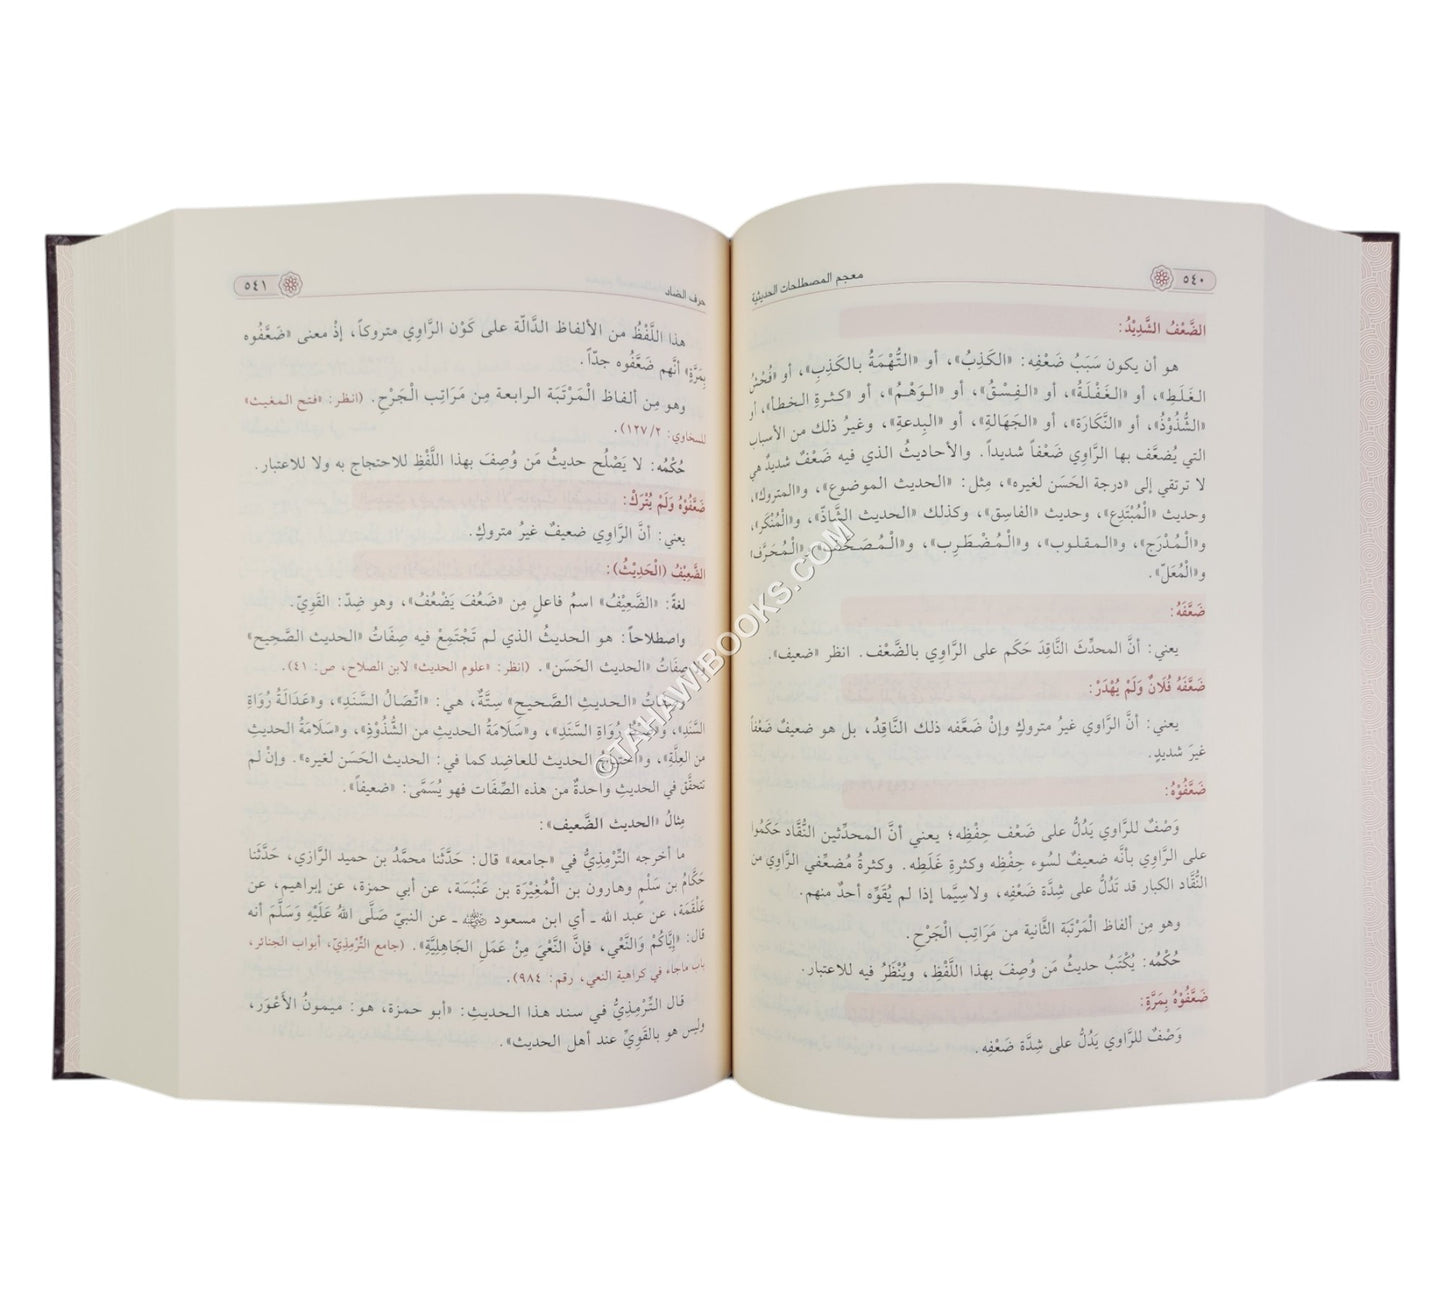 ٥٤٠
معجم المصطلحات الحديثية
الضَّعْفُ الشَّدِيْدُ:
هو أن يكون سَبَبُ ضَعْفِه: «الكَذِبُ»، أو «التُّهْمَةُ بالكَذِبِ»، أو «فُحْشُ
الغَلَطِ»، أو «الغَفْلَةُ»، أو «الفِسْقُ»، أو «الوَهْمُ»، أو «كثرةِ الخطأ»، أو
«الشُّذُوْذُ»، أو «النَّكَارَة»، أو «الجَهَالةِ»، أو «البِدعةِ»، وغيرُ ذلك من الأسباب
التي يُضعَّف بها الرَّاوِي ضَعْفاً شديداً. والأحاديثُ الذي فيه ضَعْفٌ شديدٌ هي
لا ترتقي إلى «درجة الحَسَن لغيره»، مِثل: «الحديث الموضوع»، و«المتروك»،
وحديث «الْمُبْتَدِع»، وحديث «الفاسِق»، وكذلك «الحديث الشَّاذّ»، و«الْمُنْكَر»،
و«الْمُدْرَج»، و«المقلوب»، و«الْمُضْطَرِب»، و«الْمُصَحَّف»، و«الْمُحَرَّف»
و«الْمُعَلّ».
ضَعَّفَهُ:
يعني: أنَّ المحدِّثَ النَّاقِدَ حَكَم على الرَّاوِي بالضَّعْف. انظر «ضعيف».
ضَعَّفَهُ فُلَانٌ وَلَمْ يُهْدَرْ:
يعني: أنَّ الرَّاوي غيرُ متروكٍ وإنْ ضَعَّفه ذلك النَّاقِدُ، بل هو ضعيفٌ ضَعْفاً
غيرَ شديدٍ.
ضَعَّفُوْهُ:
وَصْفٌ للراوي يَدُلُّ على ضَعْف حِفْظِه؛ يعني أنَّ المحدِّثين النُّقَّاد حَكَمُوا
على الرَّاوِي بأنَّه ضعيفٌ لسُوء حِفْظِه وكثرةِ غَلَطِه. وكثرةُ مُضعِّفي الرَّاوِي من
النُّقَّاد الكبار قد تَدُلُّ على شِدَّة ضَعْفِه، ولاسِيَّما إذا لم يُقَوِّه أحدٌ منهم.
وهو مِن ألفاظ الْمَرْتَبَة الثَّانية من مَرَاتِب الْجَرْحِ.
حُكْمُه: يُكْتَبُ حديثُ مَن وُصِفَ بهذا اللَّفْظِ، ويُنْظَرُ فيه للاعتبار.
ضَعَّفُوْهُ بِمَرَّةٍ:
وَصْفٌ للرَّاوي يَدُلُّ على شِدَّة ضَعْفِه.
حرف الضاد
٥٤١
هذا اللَّفْظُ من الألفاظ الدَّالّة على كَوْن الرَّاوِي متروكاً، إذْ معنى «ضَعَّفُوه
بِمَرَّةٍ» أنَّهم ضَعَّفُوه جدّاً.
وهو مِن ألفاظ الْمَرْتَبَة الرابعة مِن مَرَاتِب الْجَرْحِ. (انظر: «فتح المغيث»
للسخاوي: ٢/ ١٢٧).
حُكْمُه: لا يَصْلُح حديثُ مَن وُصِفَ بهذا اللَّفْظِ للاحتجاج به ولا للاعتبار.
ضَعَّفُوْهُ وَلَمْ يُتْرَكْ:
يعني: أنَّ الرَّاوِي ضعيفٌ غيرُ متروكٍ.
الضَّعِيْفُ (الْحَدِيْثُ):
لغةً: «الضَّعِيْفُ» اسمُ فاعلٍ مِن «ضَعُفَ يَضْعُفُ»، وهو ضِدّ: القَوِيّ.
واصطلاحاً: هو الحديثُ الذي لم تَجْتَمِعْ فيه صِفَاتُ «الحديث الصَّحيح»
صِفَاتُ «الحديث الحَسَن». (انظر: «علوم الحديث» لابن الصلاح، ص: ٤١).
«الحديثِ الصَّحيحِ» سِتَّةٌ، هي: «اتِّصَالُ السَّنَدِ»، و«عَدَالَةُ رُوَاةِ
السَّنَدِ»، رُوَاةِ السَّنَدِ»، و«سَلَامَةُ الحديثِ من الشُّذُوْذِ»، و«سَلَامَةُ الحديثِ
من العِلَّةِ»، و«احتياجُ الحديث للعاضد كما في: الحديث الحَسَن لغيره». وإنْ لم
تتحقَّق في الحديثِ واحدةٌ من هذه الصِّفَات فهو يُسَمَّى: «ضعيفاً».
مِثالُ «الحديث الضَّعيف»:
ما أخرجه التِّرْمِذِيُّ في «جامعه» قال: حَدَّثَنا محمَّدُ بن حميد الرَّازي، حَدَّثَنا
حَكَّامُ بن سَلْمٍ وهارون بن الْمُغِيْرَة بن عَنْبَسَة، عن أبي حمزة، عن إبراهيم، عن
عَلْقَمَة، عن عبد الله ـ أي ابن مسعود ﷺ ـ عن النبيّ صَلَّى اللهُ عَلَيْهِ وَسَلَّمَ أنه
قال: «إِيَّاكُمْ وَالنَّعْيَ، فإنَّ النَّعْيَ مِنْ عَمَلِ الجَاهِلِيَّةِ». (جامع التِّرْمِذِيّ، أبواب الجنائز،
باب ماجاء في كراهية النعي، رقم: ٩٨٤).
قال التِّرْمِذِيُّ في سند هذا الحديثِ: «أبو حمزة، هو: ميمونُ الأَعْوَر،
وليس هو بالقَوِيِّ عند أهل الحديث».
©TAHAWIBOOKS.COM